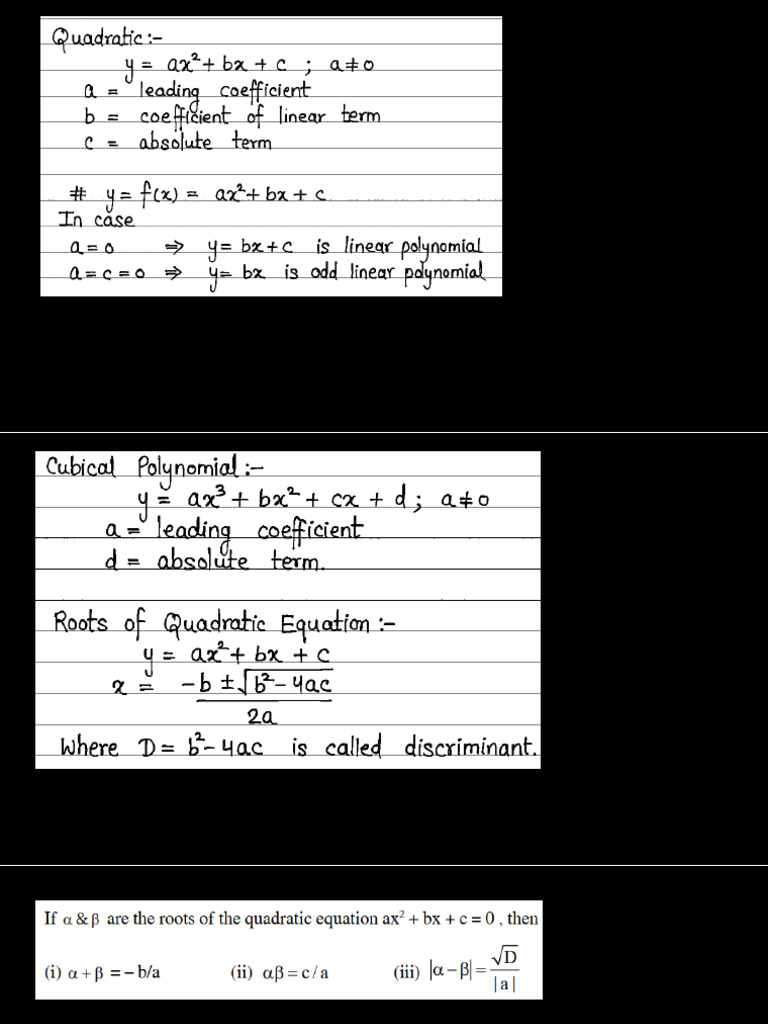 Quadratic :-
y = ax² + bx + c ; a ≠ 0
a = leading coefficient
b = coefficient of linear term
c = absolute term
# y = f(x) = ax² + bx + c
In case
a = 0 ⇒ y = bx + c is linear polynomial
a = c = 0 ⇒ y = bx is odd linear polynomial
Cubical Polynomial :-
y = ax³ + bx² + cx + d ; a ≠ 0
a = leading coefficient
d = absolute term.
Roots of Quadratic Equation :-
y = ax² + bx + c
x = -b ± √b² - 4ac
2a
Where D = b² - 4ac is called discriminant.
If α & β are the roots of the quadratic equation ax² + bx + c = 0 , then
(i) α + β = – b/a (ii) αβ = c / a (iii) |α – β| = √D / | a |